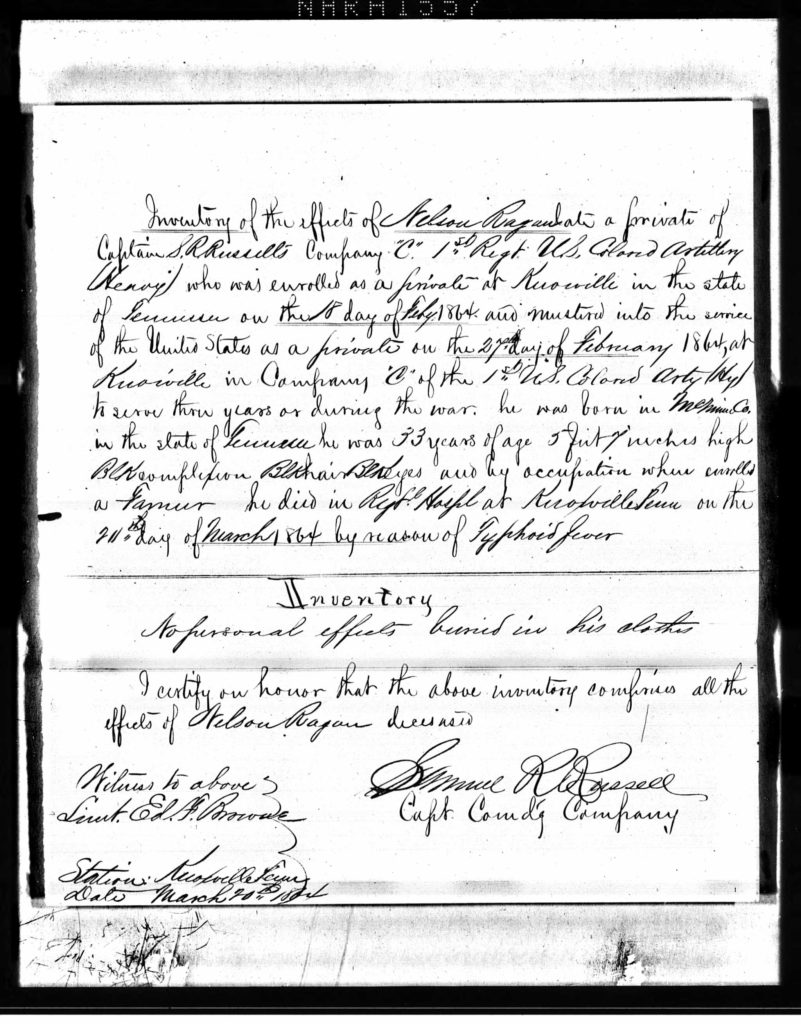 NARA 1557
Inventory of the effects of Nelson Ragan late a private of
Captain S. R. Russells Company "C." 1st Regt. U.S. Colored Artillery
(Heavy) who was enrolled as a private at Knoxville in the state
of Tennessee on the 18 day of Feby 1864 and mustered into the service
of the United States as a private on the 27th day of February 1864, at
Knoxville in Company "C" of the 1st U.S. Colored Arty (Hy)
to serve three years or during the war. he was born in McMinn Co.
in the state of Tennessee he was 33 years of age 5 feet 7 inches high
Blk complexion Blk hair Blk eyes and by occupation when enrolled
a Farmer he died in Regtl Hospl at Knoxville Tenn on the
20th day of March 1864 by reason of Typhoid fever
Inventory
No personal effects buried in his clothes
I certify on honor that the above inventory comprises all the
effects of Nelson Ragan deceased
Samuel R Russell
Capt. Comd'g Company
Witness to above
Lieut. Ed. F. Browne
Station: Knoxville Tenn
Date March 20th 1864